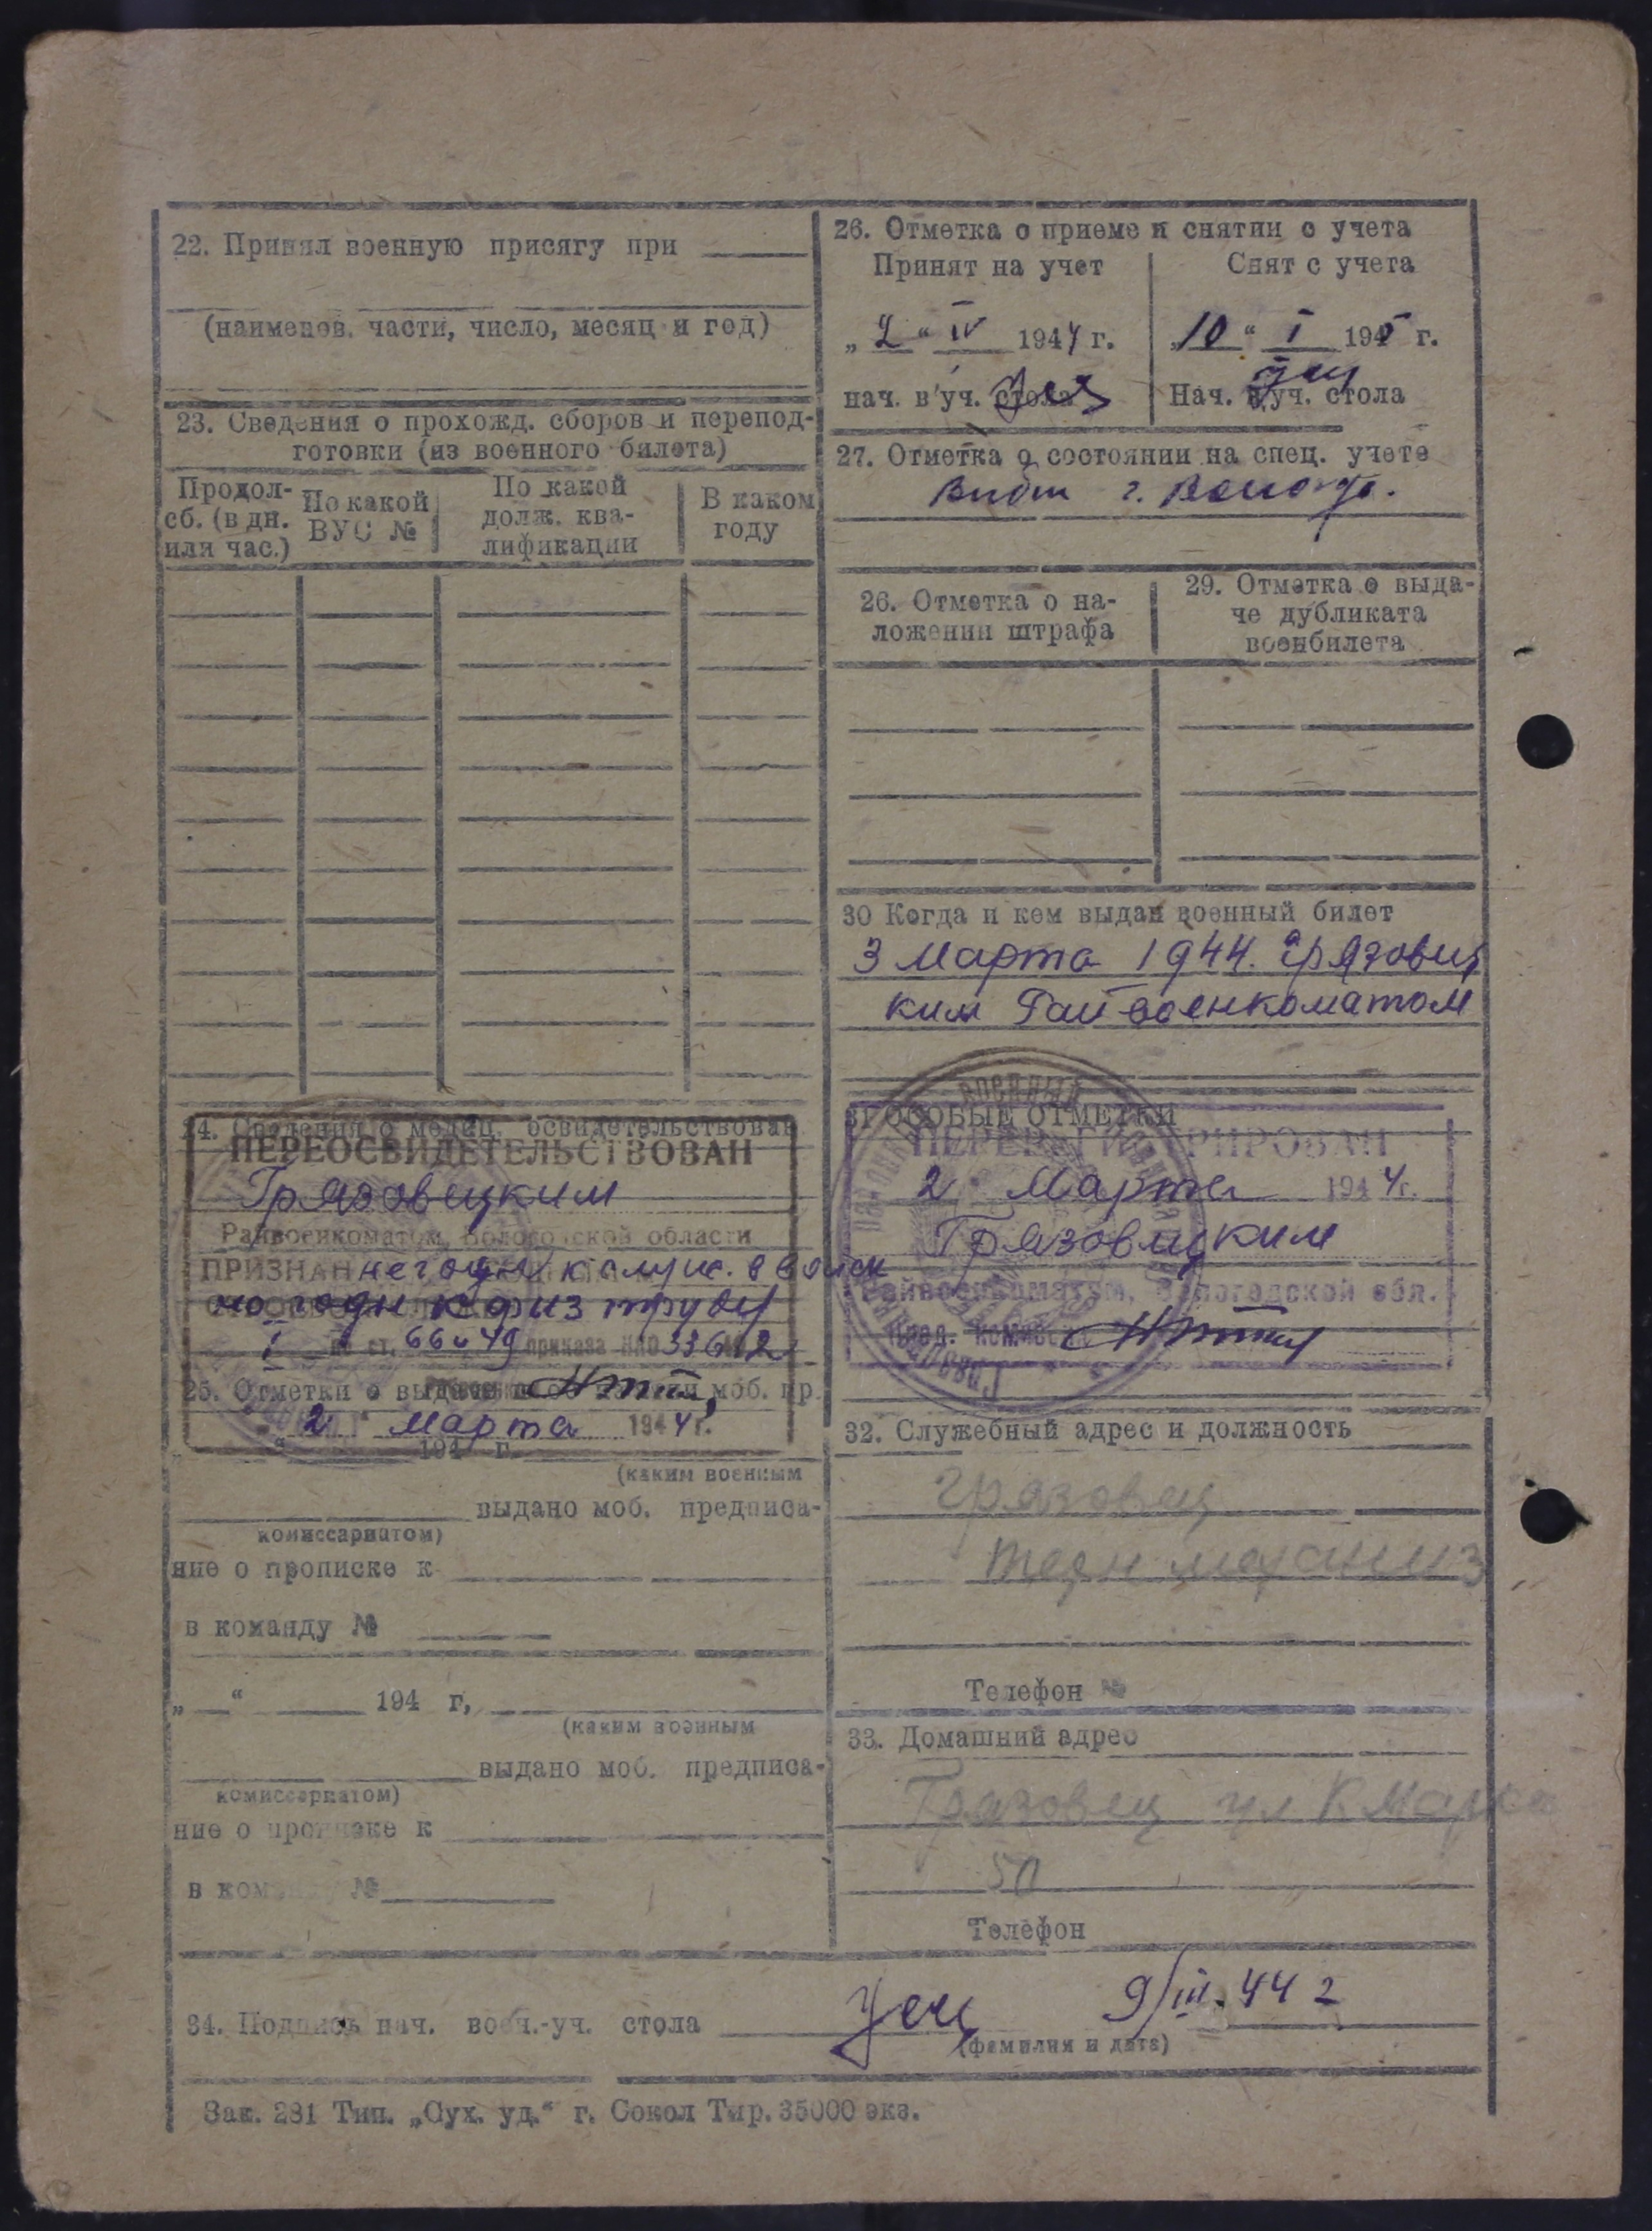 22. Принял военную присягу при
(наименов. части, число, месяц и год)
23. Сведения о прохожд. сборов и перепод-
готовки (из военного билета)
Продол-
сб. (в дн.
или час.)
По какой
ВУС №
По какой
долж. ква-
лификации
В каком
году
24. Сведения о медиц. освидетельствован
ПЕРЕОСВИДЕТЕЛЬСТВОВАН
Грязовецким
Райвоенкоматом, Вологодской области
ПРИЗНАН
но годн к физ труду
I по ст. 66 и 49 приказа НКО 336 42
25. Отметки о выдаче моб. пр.
2 " марта 1944 г.
194 г.
(каким военным
выдано моб. предписа-
комиссариатом)
ние о прописке к
в команду №
„ “ 194 г,
(каким военным
выдано моб. предписа-
комиссариатом)
ние о прописке к
в команду №
26. Отметка о приеме и снятии с учета
Принят на учет
Снят с учета
„ 2 “ IV 1944 г.
„ 10 “ I 1945 г.
нач. в уч. стола
Нач. в уч. стола
27. Отметка о состоянии на спец. учете
г.
26. Отметка о на-
ложении штрафа
29. Отметка о выда-
че дубликата
военбилета
30 Когда и кем выдан военный билет
3 Марта 1944. Грязовец
ким Райвоенкоматом
31 ОСОБЫЕ ОТМЕТКИ
ПЕРЕРЕГИСТРИРОВАН
2 " Марта 1944г.
Грязовецким
Райвоенкоматом, Вологодской обл.
Пред. комиссии
32. Служебный адрес и должность
Грязовец
Телефон №
33. Домашний адрес
Грязовец ул К Маркса
50
Телефон
34. Подпись нач. воен.-уч. стола 9/III.44 г
(фамилия и дата)
Зак. 281 Тип. „Сух. уд.“ г. Сокол Тир. 35000 экз.